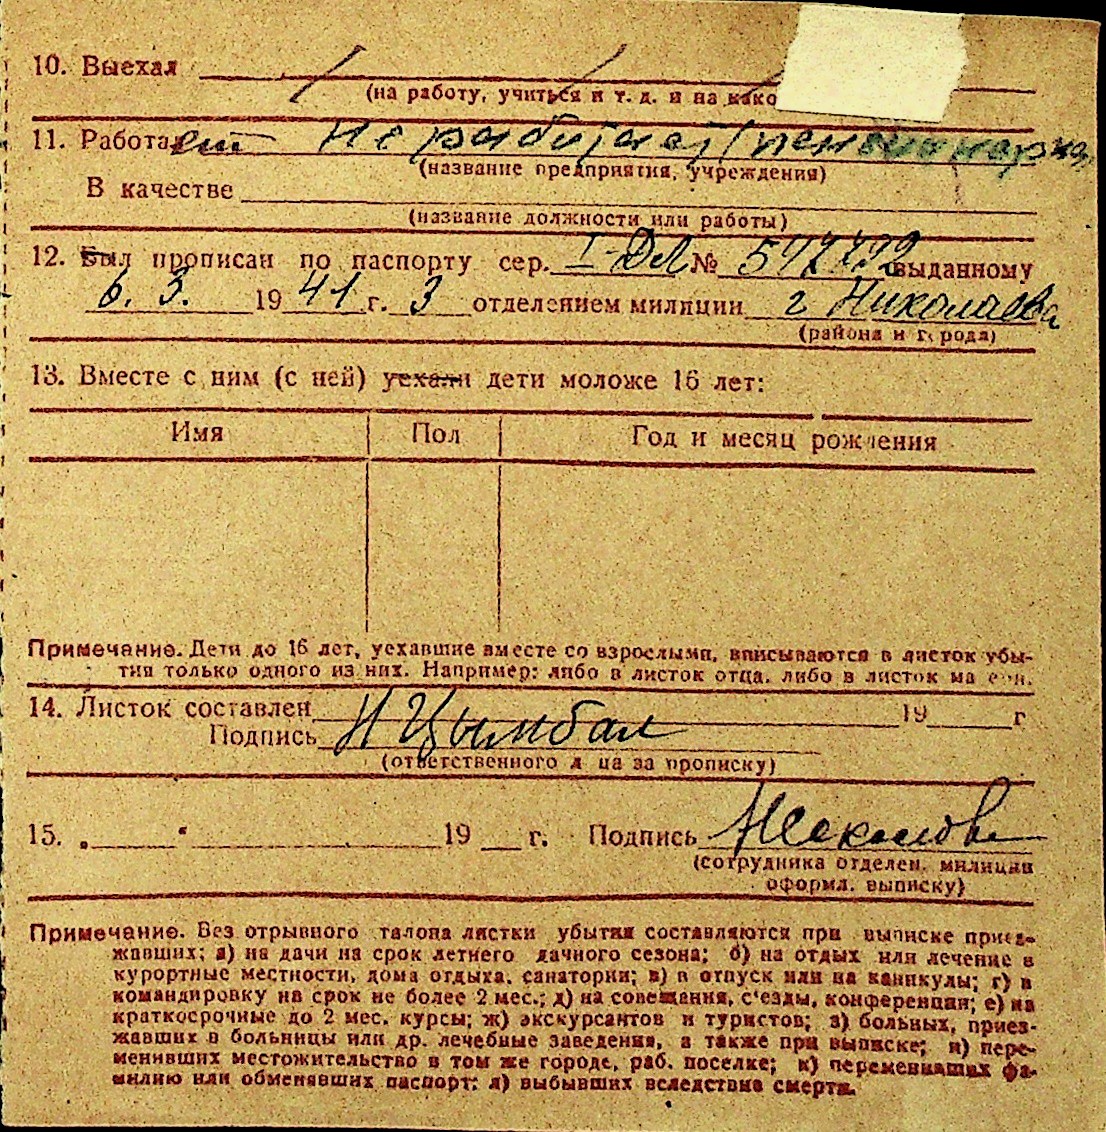 10. Выехал
(на работу, учиться и т. д. и на како
11. Работает не работает (пенсионерка)
(название предприятия, учреждения)
В качестве
(название должности или работы)
12. Был прописан по паспорту сер. I-ДЛ № 597792 выданному
6. 3. 1941 г. 3 отделением милиции г Николаева
(района и города)
13. Вместе с ним (с ней) уехали дети моложе 16 лет:
Имя Пол Год и месяц рождения
Примечание. Дети до 16 лет, уехавшие вместе со взрослыми, вписываются в листок убы-
тия только одного из них. Например: либо в листок отца, либо в листок матери.
14. Листок составлен 19 г
Подпись Н Цымбал
(ответственного лица за прописку)
15. 19 г. Подпись
(сотрудника отделен. милиции
оформл. выписку)
Примечание. Без отрывного талона листки убытия составляются при выписке приез-
жавших; а) на дачи на срок летнего дачного сезона; б) на отдых или лечение в
курортные местности, дома отдыха, санатории; в) в отпуск или на каникулы; г) в
командировку на срок не более 2 мес.; д) на совещания, с'езды, конференции; е) на
краткосрочные до 2 мес. курсы; ж) экскурсантов и туристов; з) больных, приез-
жавших в больницы или др. лечебные заведения, а также при выписке; и) пере-
менивших местожительство в том же городе, раб. поселке; к) переменивших фа-
милию или обменявших паспорт; л) выбывших вследствие смерти.